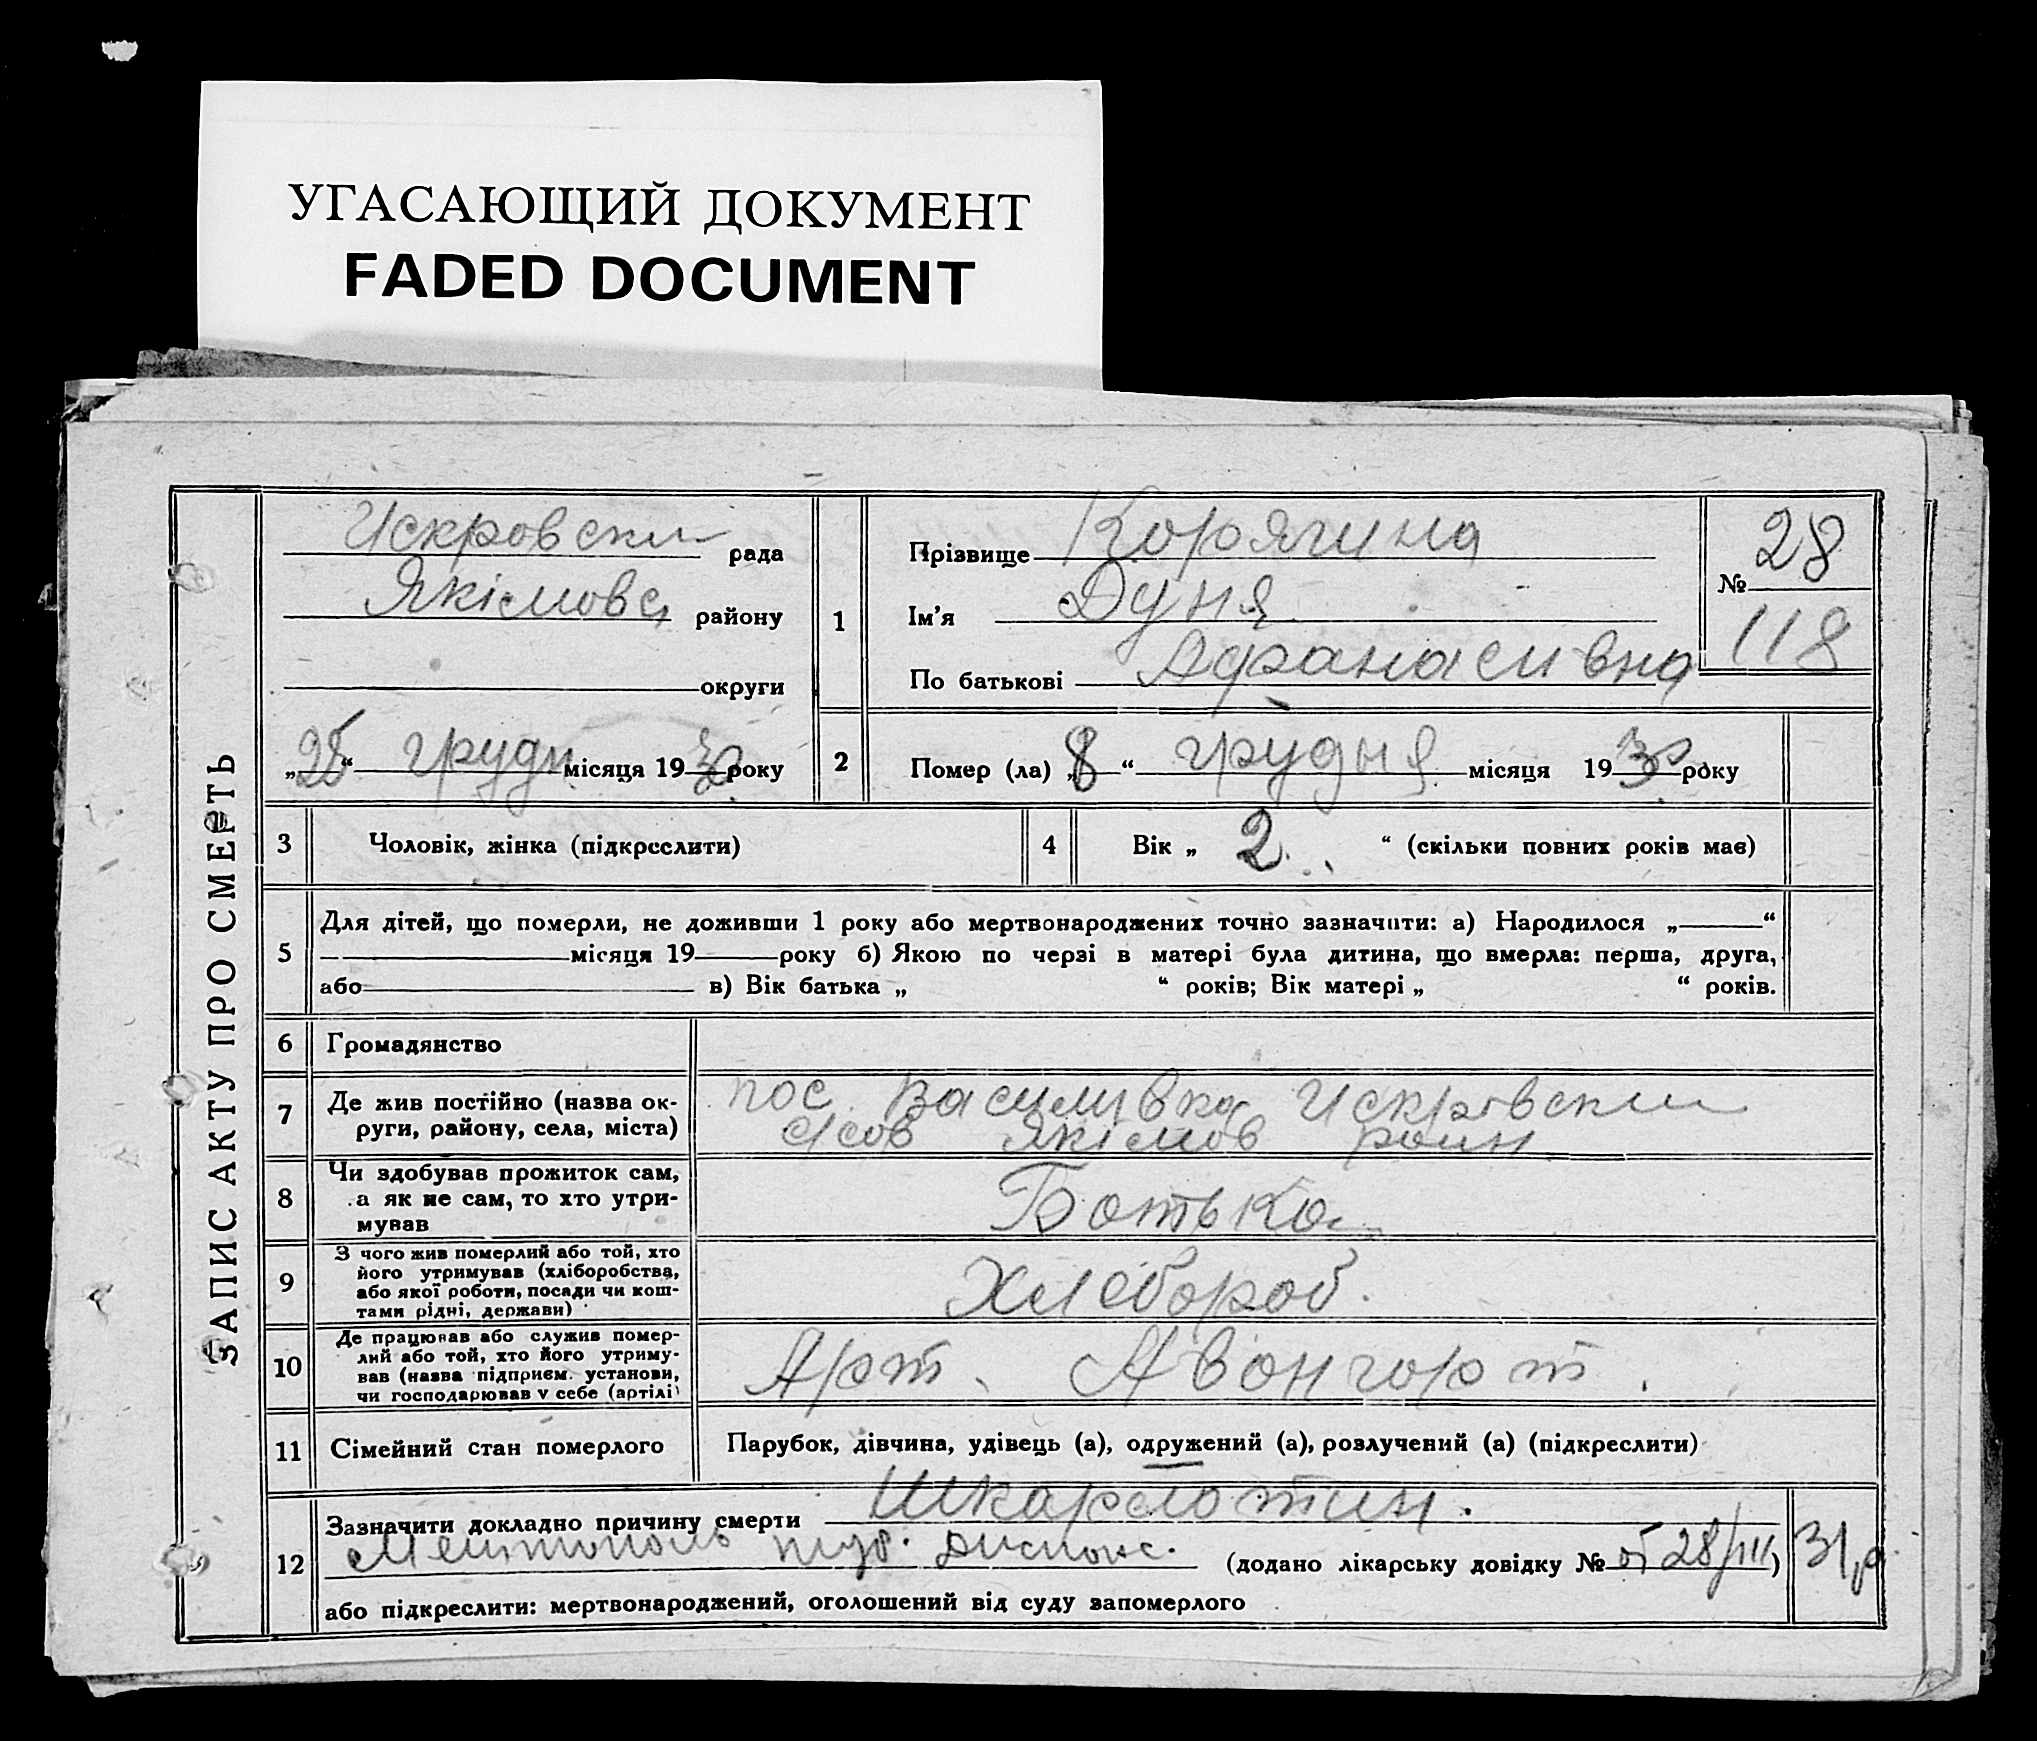 УГАСАЮЩИЙ ДОКУМЕНТ
FADED DOCUMENT
ЗАПИС АКТУ ПРО СМЕРТЬ
Искровски рада
Якімовс району
округи
„25“ грудн місяця 1930 року
1
Прізвище Корягина
Ім'я Дуня
По батькові Афанасивна
№ 28
118
2 Помер (ла) „8“ грудня місяця 1930 року
3 Чоловік, жінка (підкреслити)
4 Вік „ 2 “ (скільки повних років має)
5 Для дітей, що померли, не доживши 1 року або мертвонароджених точно зазначити: а) Народилося „ “
місяця 19 року б) Якою по черзі в матері була дитина, що вмерла: перша, друга,
або в) Вік батька „ “ років; Вік матері „ “ років.
6 Громадянство
7 Де жив постійно (назва ок-
руги, району, села, міста)
пос. Василивка Искровски
Якімов
8 Чи здобував прожиток сам,
а як не сам, то хто утри-
мував
Батько
9 З чого жив померлий або той, хто
його утримував (хліборобства,
або якої роботи, посади чи кош-
тами рідні, держави)
Хлебороб.
10 Де працював або служив помер-
лий або той, хто його утриму-
вав (назва підприєм. установи,
чи господарював у себе (артілі)
Арт. Авонгорт.
11 Сімейний стан померлого
Парубок, дівчина, удівець (а), одружений (а), розлучений (а) (підкреслити)
12 Зазначити докладно причину смерти Шкарлотин.
(додано лікарську довідку № от 28/III) 31 р
або підкреслити: мертвонароджений, оголошений від суду запомерлого